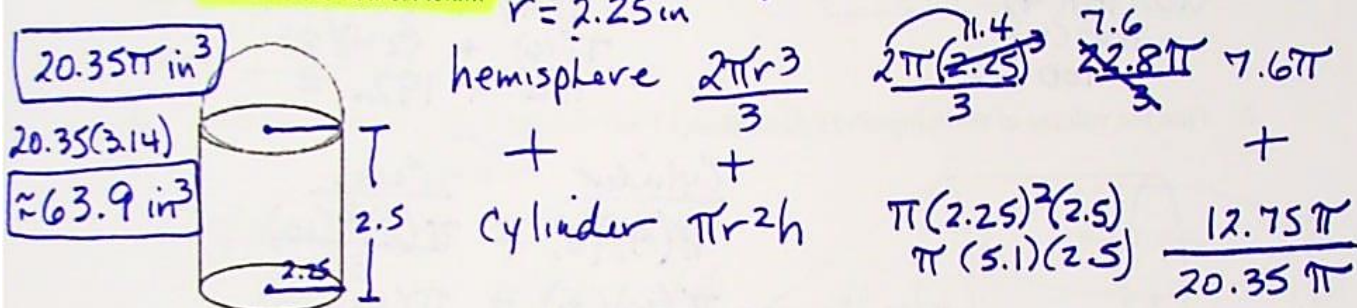 r = 2.25 in
20.35π in³
20.35(3.14)
≈63.9 in³
2.5
2.25
hemisphere 2πr³/3
+ +
cylinder πr²h
11.4
2π(2.25)³/3
7.6
22.8π/3
7.6π
+
π(2.25)²(2.5)
π(5.1)(2.5)
12.75π
20.35π